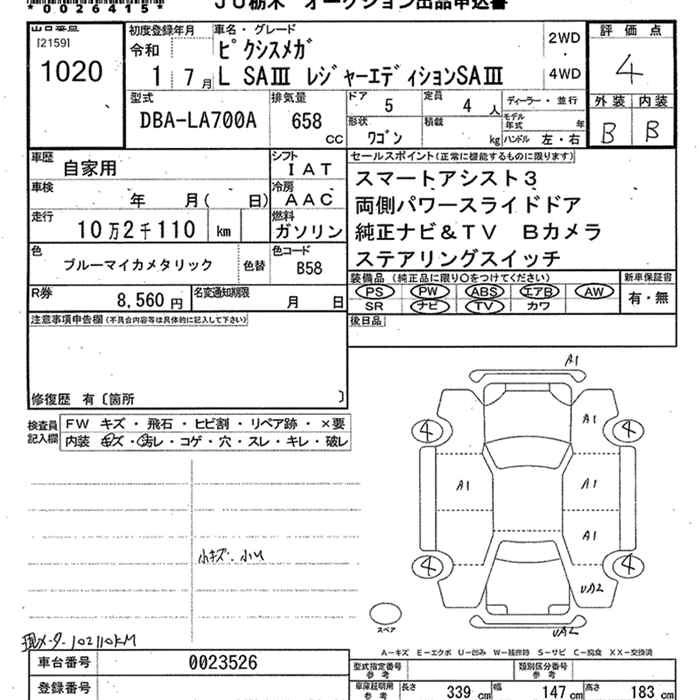 *0026415*
JU栃木 オークション出品申込書
出品番号
[2159]
1020
初度登録年月
令和
1 7月
車名・グレード
ピクシスメガ
L SAⅢ レジャーエディションSAⅢ
2WD
・
4WD
評価点
4
外装 内装
B B
型式
DBA-LA700A
排気量
658 cc
ドア 5
定員 4人
ディーラー・並行
形状 ワゴン
積載 kg
モデル年式 年
ハンドル 左・右
車歴 自家用
シフト IAT
車検 年 月( 日)
冷房 AAC
走行 10万2千110 km
燃料 ガソリン
色 ブルーマイカメタリック 色替
色コード B58
R券 8,560円
名変通知期限 月 日
セールスポイント(正常に機能するものに限ります)
スマートアシスト3
両側パワースライドドア
純正ナビ&TV Bカメラ
ステアリングスイッチ
装備品 (純正品に限り○をつけてください)
PS PW ABS エアB AW
SR ナビ TV カワ
新車保証書
有・無
注意事項申告欄(不具合内容等は具体的に記入して下さい)
後日品
修復歴 有〔箇所 〕
検査員記入欄
FW キズ・飛石・ヒビ割・リペア跡・×要
内装 キズ・汚レ・コゲ・穴・スレ・キレ・破レ
小キズ・小U
現メーター102110KM
A1
4
A1
4
A1
A1
A1
4
4
UA2
UA2
スペア
A-キズ E-エクボ U-凹み W-補修跡 S-サビ C-腐食 XX-交換済
車台番号 0023526
登録番号
型式指定番号 参考
類別区分番号 参考
車庫証明用 参考
長さ 339 cm
幅 147 cm
高さ 183 cm